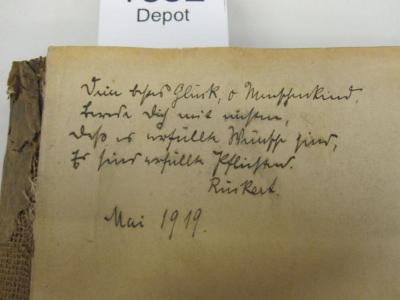 Depot
Dein bestes Glück, o Menschenkind,
Berede dich mit nichten,
Daß es erfüllte Wünsche sind,
Es sind erfüllte Pflichten.
Rückert.
Mai 1919.